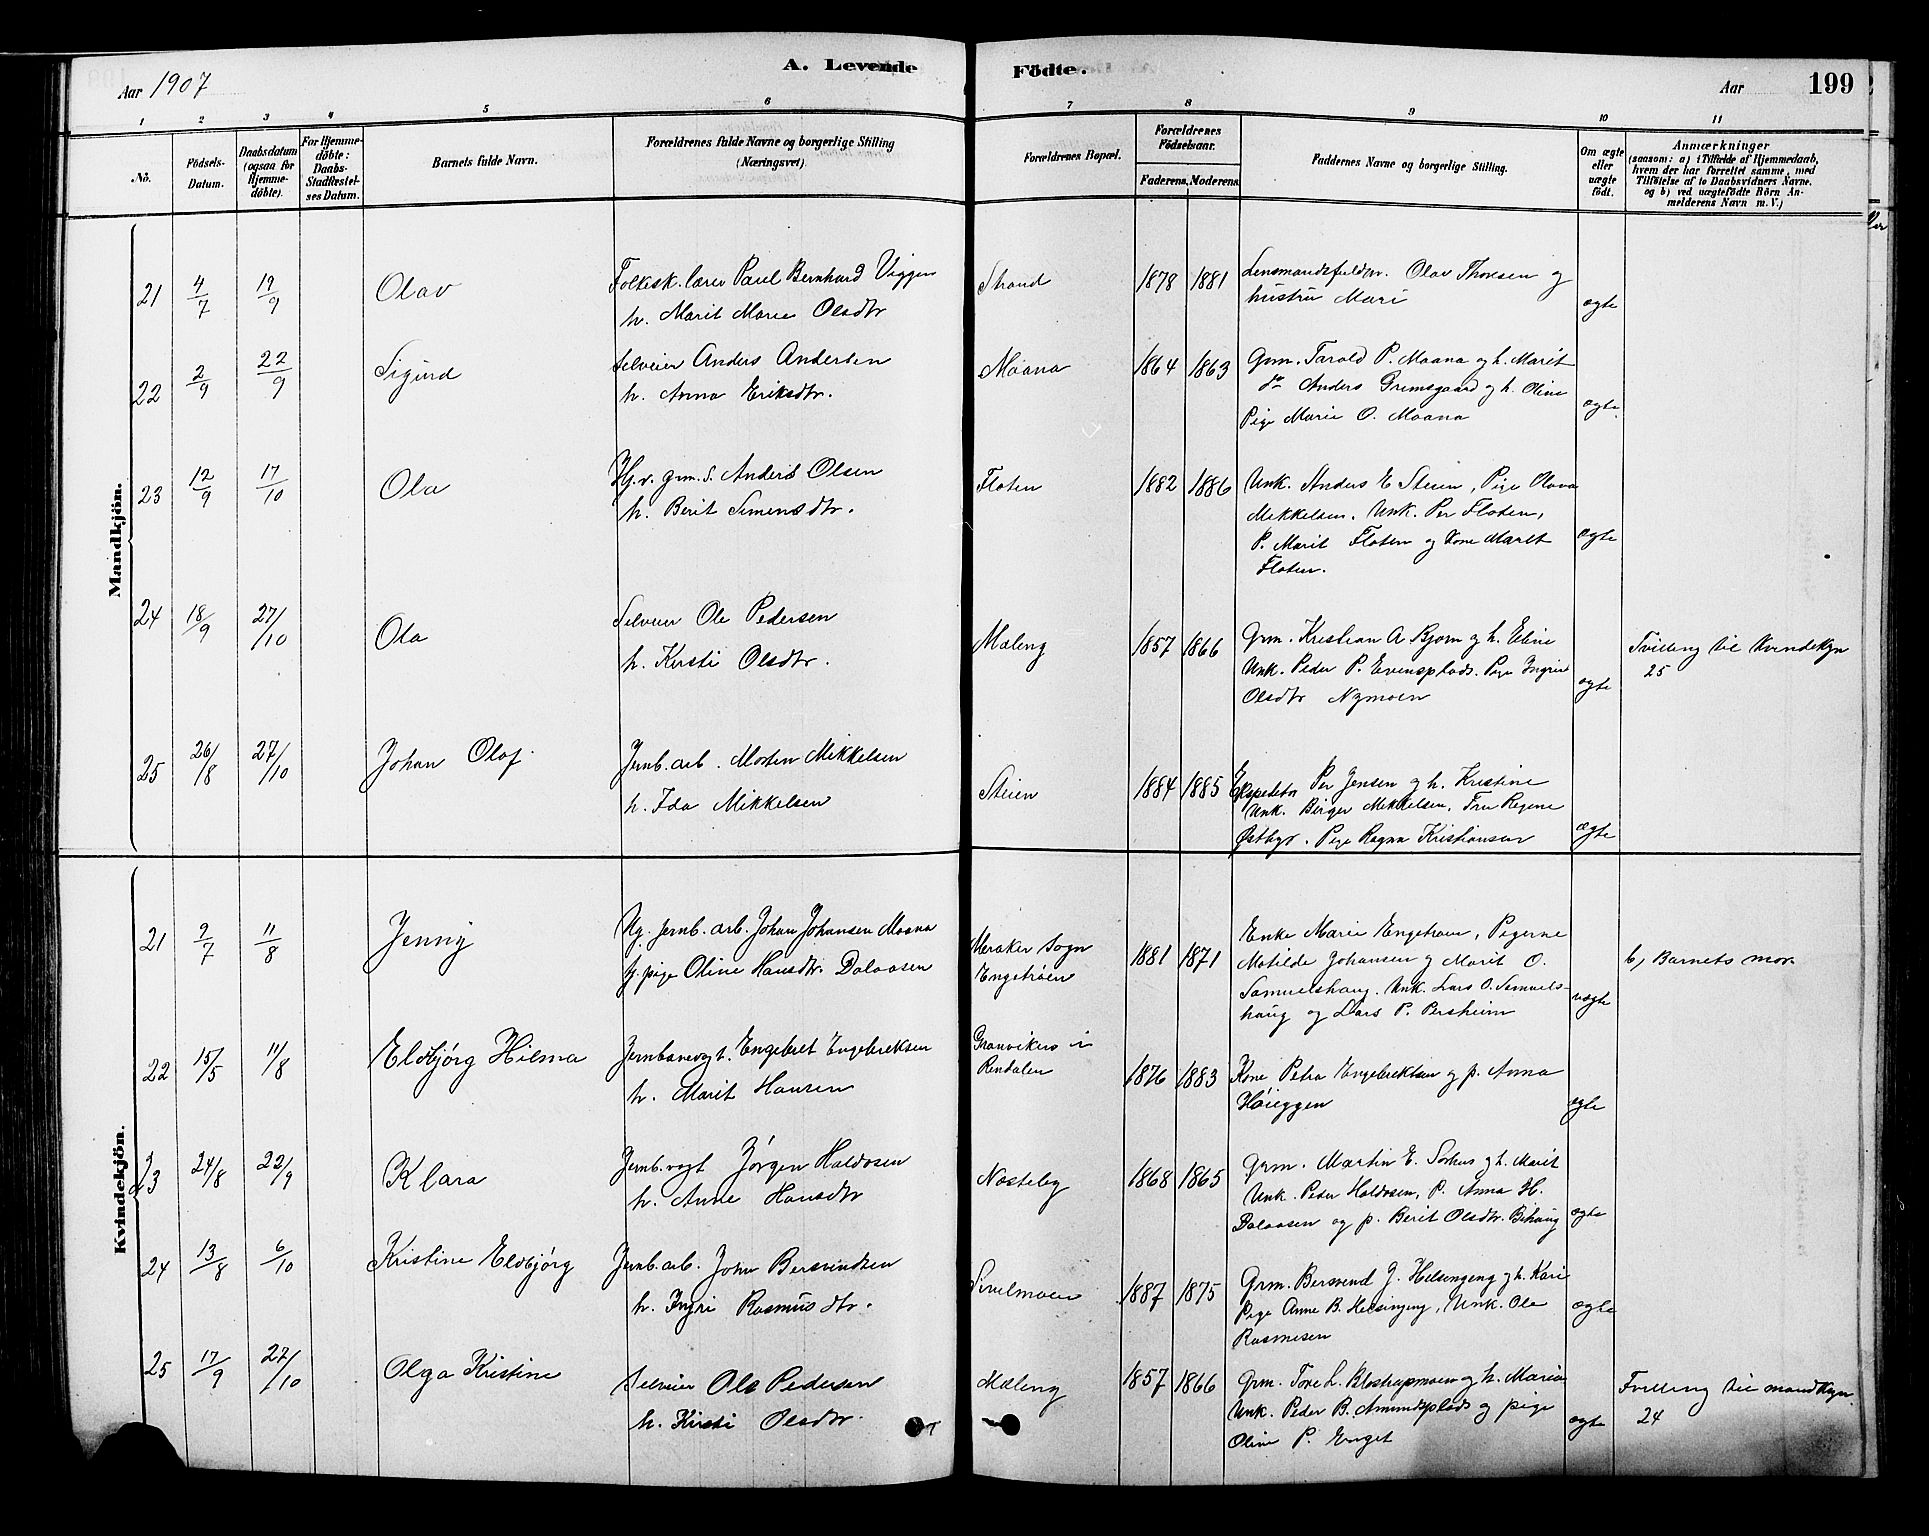 Aar 1907
A. Levende
Födte.
Aar
199
1 2 3 4 5 6 7 8 9 10 11
No.
Födsels-Datum.
Daabsdatum (ogsaa for Hjemmedöbte).
For Hjemmedöbte: Daabs-Stadfæstelses Datum.
Barnets fulde Navn.
Forældrenes fulde Navne og borgerlige Stilling (Næringsvei).
Forældrenes Bopæl.
Forældrenes Födselsaar.
Faderens. Moderens.
Faddernes Navne og borgerlige Stilling.
Om ægte eller uægte födt.
Anmærkninger
(saasom: a) i Tilfælde af Hjemmedaab, hvem der har forrettet samme, med Tilföielse af to Daabsvidners Navne. og b) ved uægtefödte Börn Anmelderens Navn m. V.)
Mandkjön.
21 4/7 19/9 Olav
Folkesk. lærer Paul Bernhard Viggen
h. Marit Marie Olsdtr
Strand 1878 1881
Lensmandsfuldm. Olav Thoresen og
hustru Mari
ægte
22 2/9 22/9 Sigurd
Selveier Anders Andersen
h. Anna Eriksdtr.
Moana 1864 1863
Grm. Tarald P. Moana og h. Marit
do Anders Gremsgaard og h. Oline
Pige Marie O. Moana
ægte
23 12/9 17/10 Ola
Hj.v. grm. s. Anders Olsen
h. Berit Simensdtr.
Floten 1882 1886
Unk. Anders E Steien, Pige Olava
Mikkelsen. Unk. Per Floten,
P. Marit Floten og Kone Marit
Floten.
ægte
24 18/9 27/10 Ola
Selveier Ole Pedersen
h. Kirsti Olsdtr.
Mæleng 1857 1866
Grm. Kristian A Bjorn og h. Eline
Unk. Peder P. Evensplads. Pige Ingrid
Olsdtr Nymoen
ægte
Tvilling til Kvindekjn
25
25 26/8 27/10 Johan Olaf
Jernb. arb. Morten Mikkelsen
h. Ida Mikkelsen
Steien 1884 1885
Ekspeditør Per Jensen og h. Kristine
Unk. Birger Mikkelsen. Fru Regine
Østbye. Pige Ragna Kristiansen
ægte
Kvindekjön.
21 2/7 11/8 Jenny
Ug. Jernb. arb. Johan Johansen Moana
og pige Oline Hansdtr. Dalaasen
Meraker Sogn
Engetrøen 1881 1871
Enke Marie Engetrøen, Pigerne
Matilde Johansen og Marit O.
Samuelshaug. Unk. Lars O. Samuels-
haug og Lars P. Bersheim
uægte
b) Barnets mor
22 15/5 11/8 Eldbjørg Hilma
Jernbanevogt. Engebret Engebretsen
h. Marit Hansen
Granviken i
Rendalen 1876 1883
Kone Petra Engebrektsen og p. Anna
Høieggen
ægte
23 24/8 22/9 Klara
Jernb.vogt Jørgen Haldosen
h. Anne Hansdtr
Nosteby 1868 1865
Grm. Martin E. Sorhus og h. Marit
Unk. Peder Haldosen, P. Anna H.
Dalaasen og p. Berit Olsdtr. Bihaug
ægte
24 13/8 6/10 Kristine Eldbjørg
Jernb. arb. John Bersvendsen
h. Ingri Rasmusdtr.
Sivilmoen 1887 1875
Grm. Bersvend J. Helsingeng og h. Kari
pige Anne B. Helsingeng, Unk. Ole
Rasmusen
ægte
25 17/9 27/10 Olga Kristine
Selveier Ole Pedersen
h. Kirsti Olsdtr.
Mæleng 1857 1866
Grm. Tore L. Blostrupmoen og h. Maria
Unk. Peder B. Amundsplads og pige
Oline P. Enget
ægte
Tvilling til mandkjn
24